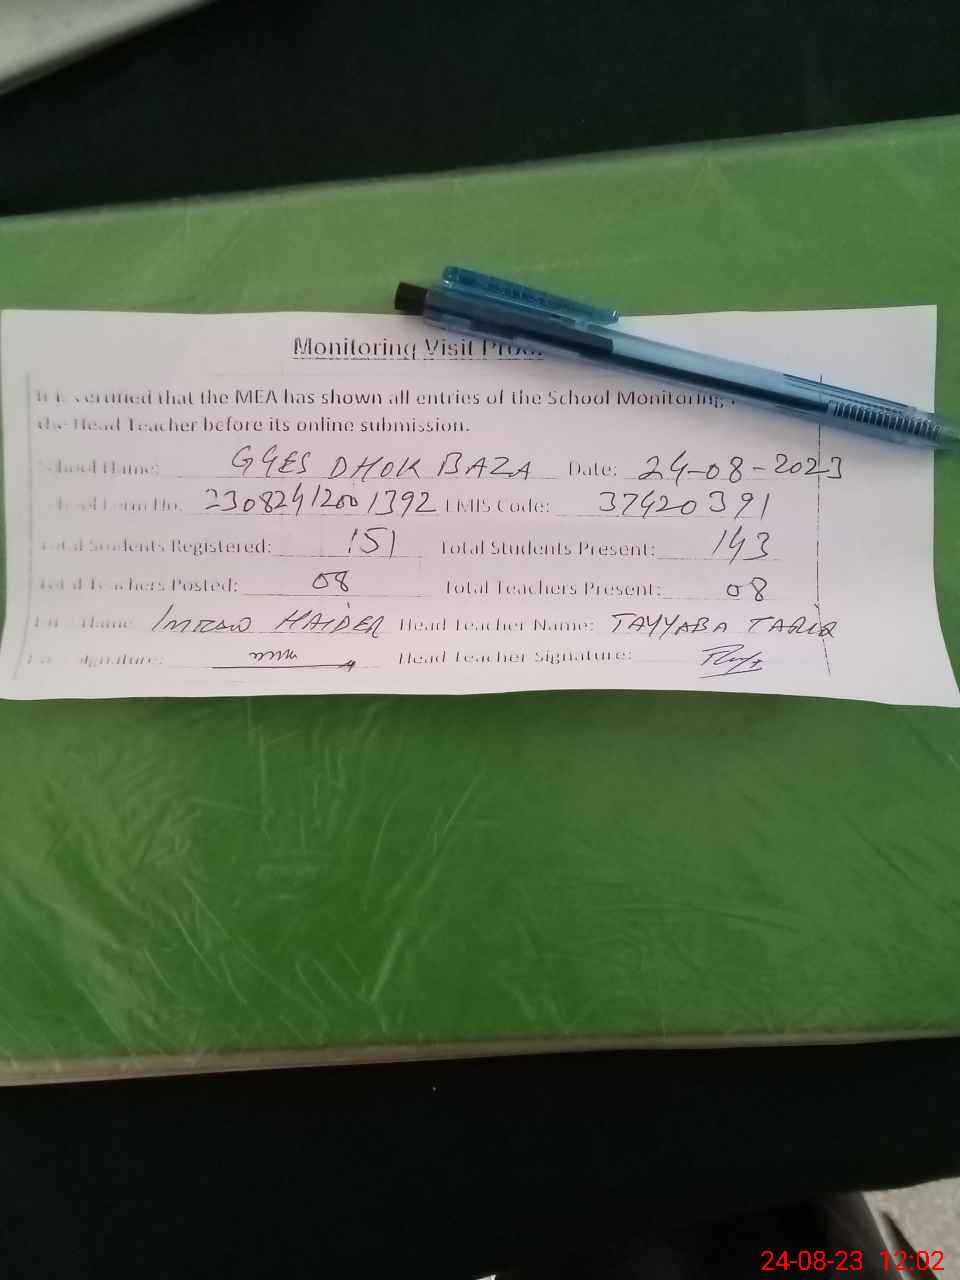 Monitoring Visit Proof
It is certified that the MEA has shown all entries of the School Monitoring
the Head Teacher before its online submission.
School Name: GGES DHOK BAZA Date: 24-08-2023
School Form No. 2308241200 1392 EMIS Code: 37420391
Total Students Registered: 151 Total Students Present: 143
Total Teachers Posted: 08 Total Teachers Present: 08
Name: HAIDER Head Teacher Name: TAYYABA TARIQ
Signature: Head Teacher Signature:
24-08-23 12:02